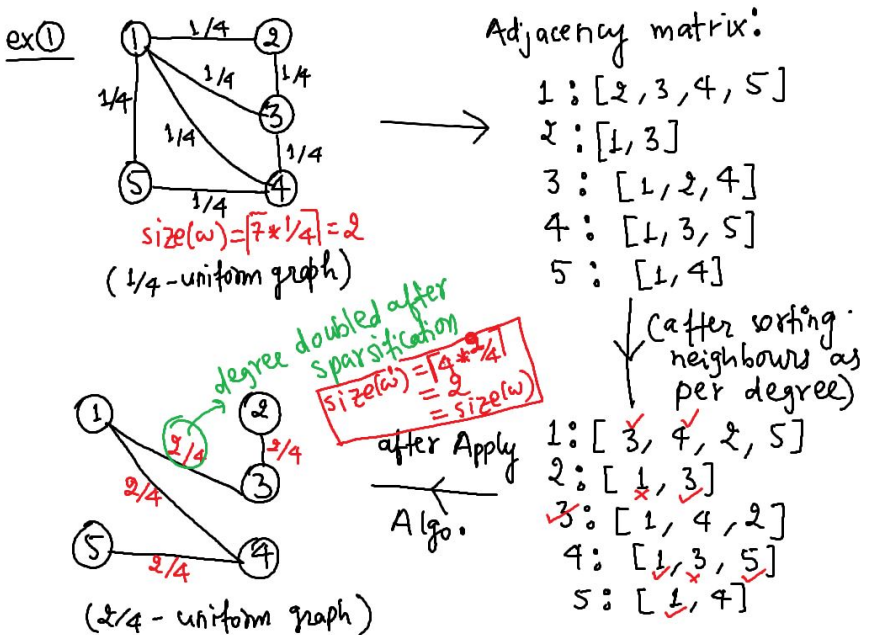 ex①
1 1/4 2
1/4 1/4 1/4
3
1/4 1/4
5 1/4 4
size(ω)=⌈7*1/4⌉=2
(1/4-uniform graph)
Adjacency matrix:
1:[2,3,4,5]
2:[1,3]
3: [1,2,4]
4: [1,3,5]
5: [1,4]
(after sorting
neighbours as
per degree)
1:[3, 4, 2, 5]
2:[1, 3]
3:[1, 4, 2]
4: [1, 3, 5]
5: [1, 4]
after Apply
Algo.
degree doubled after
sparsification
size(ω')=⌈4*2/4⌉
= 2
= size(ω)
1 2
2/4 2/4
2/4 3
5 2/4 4
(2/4 - uniform graph)